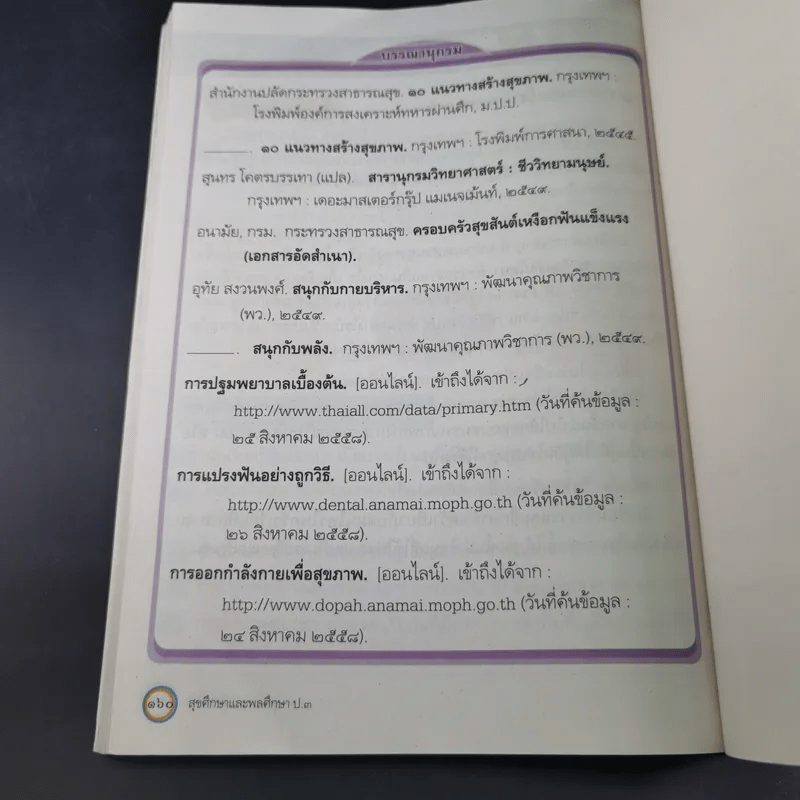 บรรณานุกรม
สำนักงานปลัดกระทรวงสาธารณสุข. ๑๐ แนวทางสร้างสุขภาพ. กรุงเทพฯ :
โรงพิมพ์องค์การสงเคราะห์ทหารผ่านศึก, ม.ป.ป.
______. ๑๐ แนวทางสร้างสุขภาพ. กรุงเทพฯ : โรงพิมพ์การศาสนา, ๒๕๔๕.
สุนทร โคตรบรรเทา (แปล). สารานุกรมวิทยาศาสตร์ : ชีววิทยามนุษย์.
กรุงเทพฯ : เดอะมาสเตอร์กรุ๊ป แมเนจเม้นท์, ๒๕๔๙.
อนามัย, กรม. กระทรวงสาธารณสุข. ครอบครัวสุขสันต์เหงือกฟันแข็งแรง
(เอกสารอัดสำเนา).
อุทัย สงวนพงศ์. สนุกกับกายบริหาร. กรุงเทพฯ : พัฒนาคุณภาพวิชาการ
(พว.), ๒๕๔๙.
______. สนุกกับพลัง. กรุงเทพฯ : พัฒนาคุณภาพวิชาการ (พว.), ๒๕๔๙.
การปฐมพยาบาลเบื้องต้น. [ออนไลน์]. เข้าถึงได้จาก :
http://www.thaiall.com/data/primary.htm (วันที่ค้นข้อมูล :
๒๕ สิงหาคม ๒๕๕๘).
การแปรงฟันอย่างถูกวิธี. [ออนไลน์]. เข้าถึงได้จาก :
http://www.dental.anamai.moph.go.th (วันที่ค้นข้อมูล :
๒๖ สิงหาคม ๒๕๕๘).
การออกกำลังกายเพื่อสุขภาพ. [ออนไลน์]. เข้าถึงได้จาก :
http://www.dopah.anamai.moph.go.th (วันที่ค้นข้อมูล :
๒๔ สิงหาคม ๒๕๕๘).
๑๖๐ สุขศึกษาและพลศึกษา ป.๓